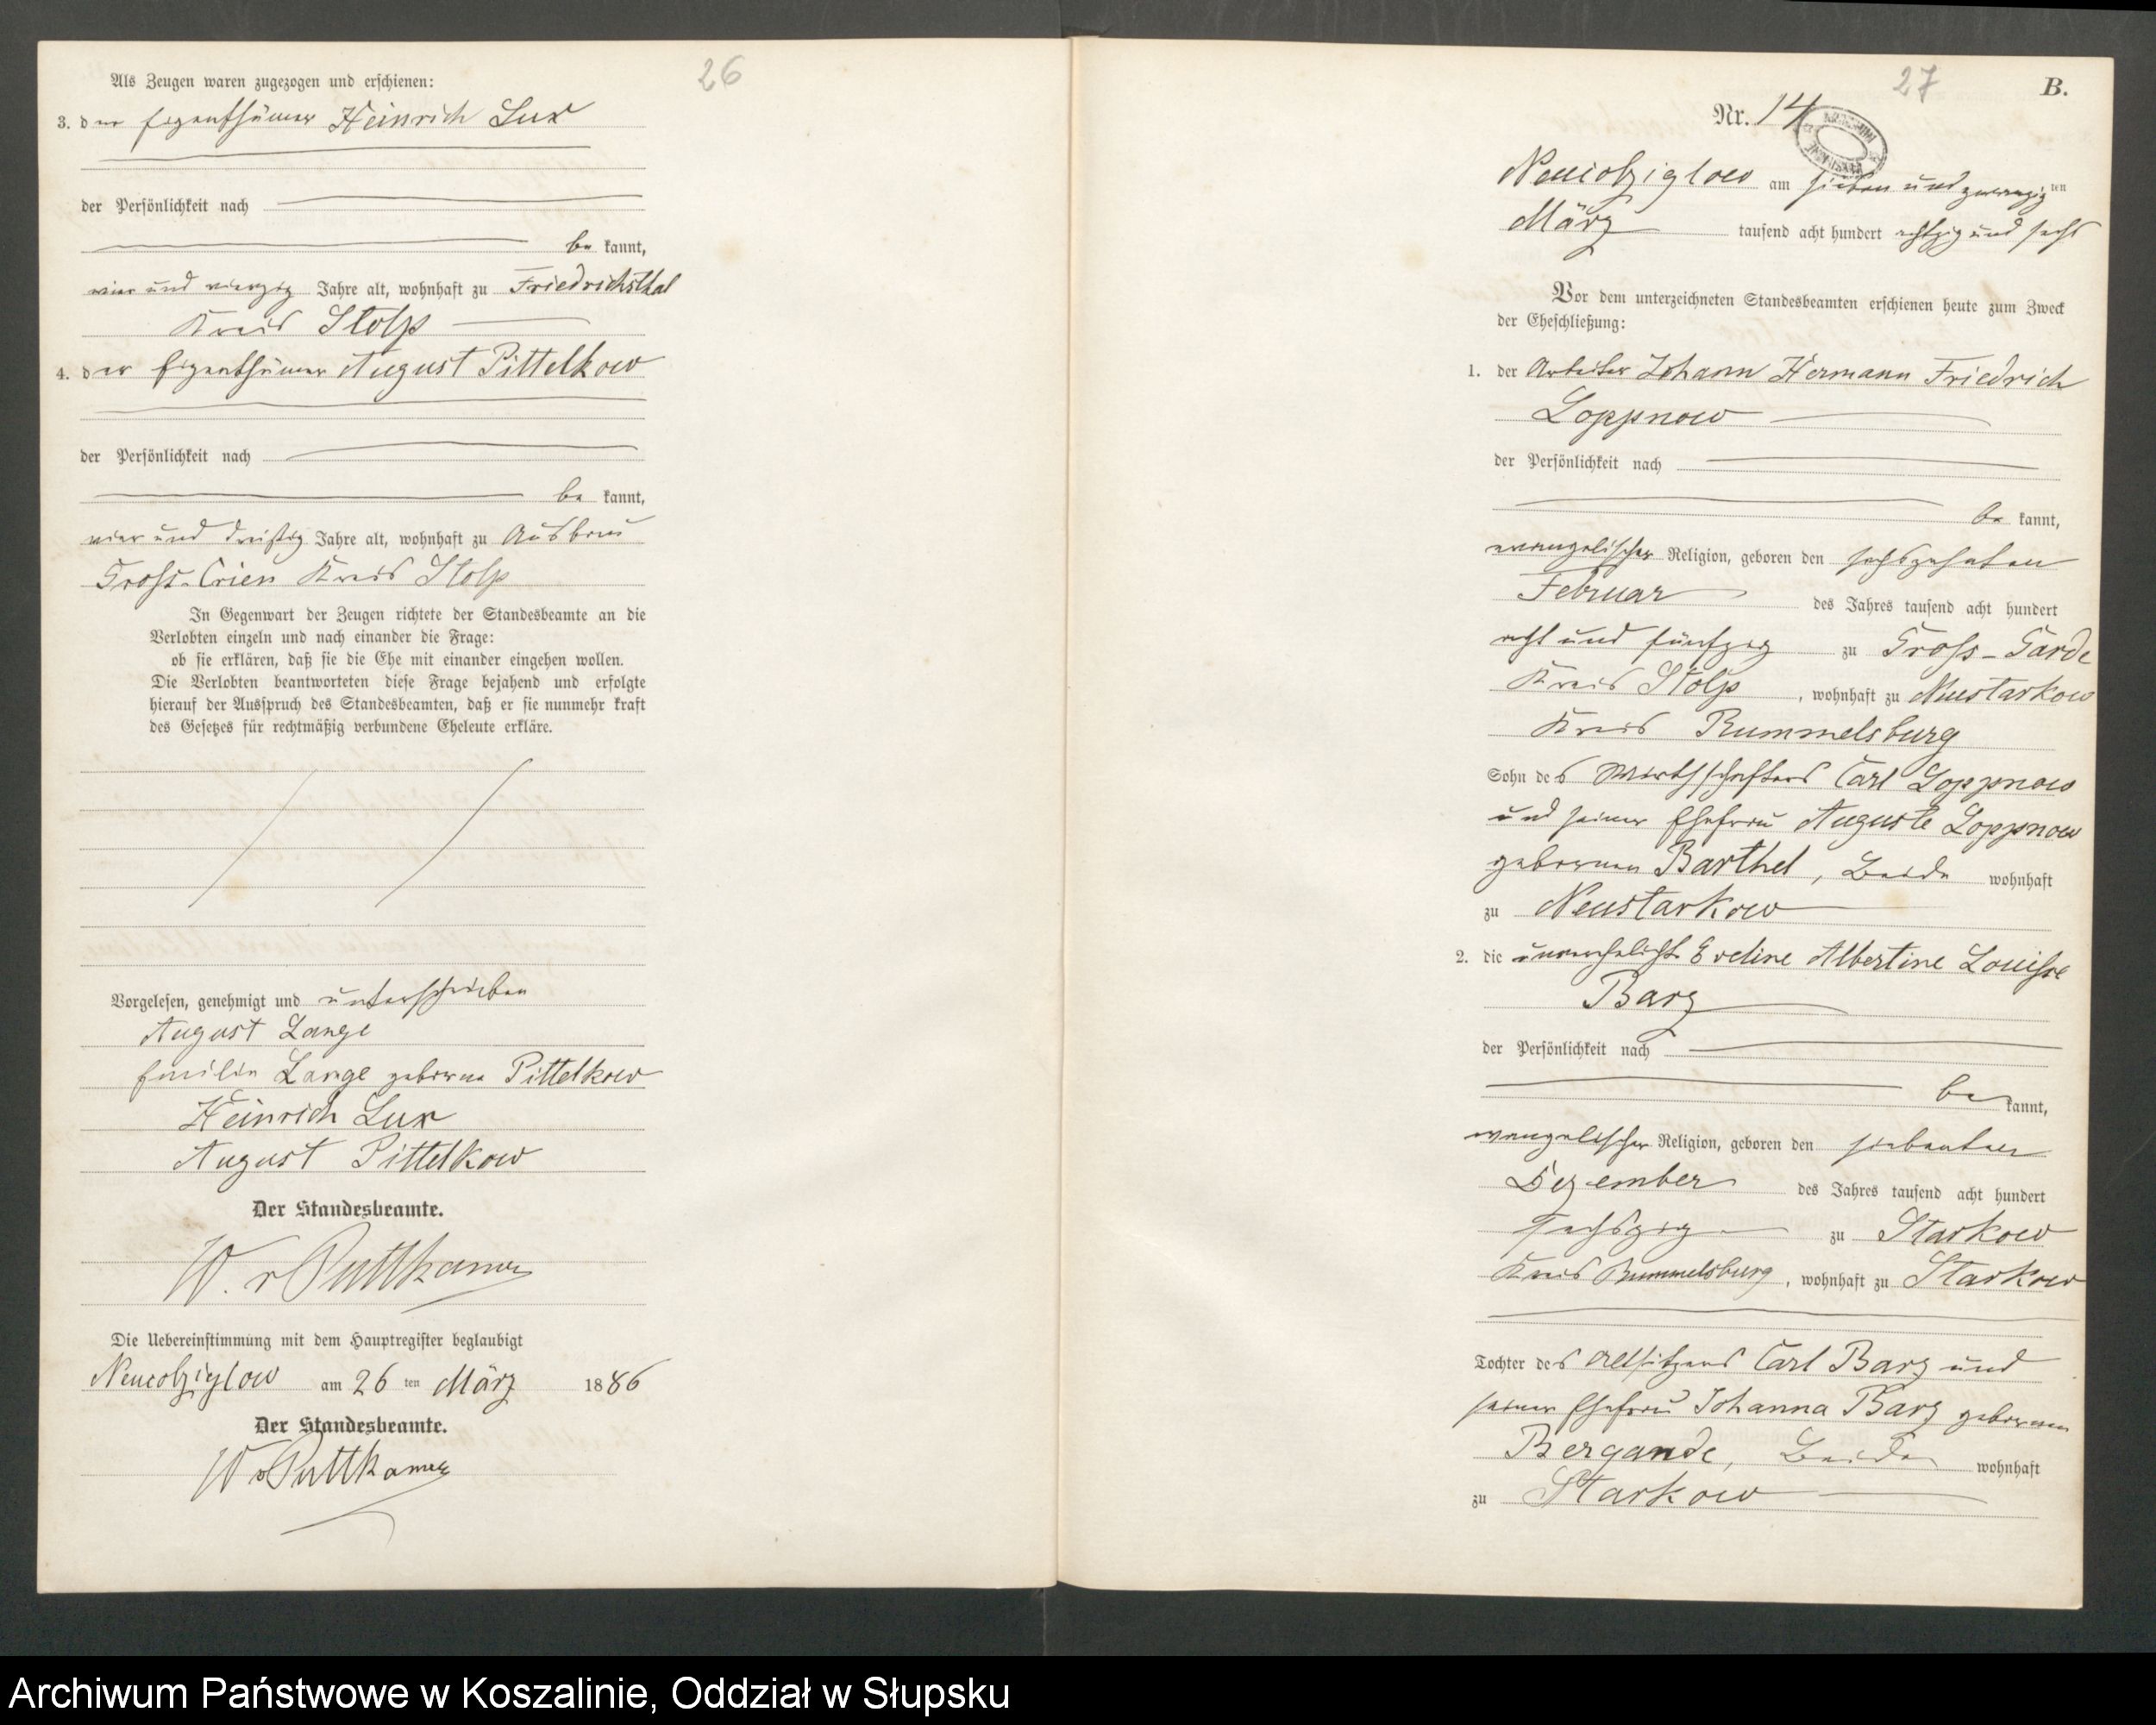 26
Als Zeugen waren zugezogen und erschienen:
3. der Eigenthümer Heinrich Lux
der Persönlichkeit nach
be kannt,
vier und vierzig Jahre alt, wohnhaft zu Friedrichsthal
Kreis Stolp
4. der Eigenthümer August Pittelkow
der Persönlichkeit nach
be kannt,
vier und dreißig Jahre alt, wohnhaft zu Ausbau
Gross-Crien Kreis Stolp
In Gegenwart der Zeugen richtete der Standesbeamte an die
Verlobten einzeln und nach einander die Frage:
ob sie erklären, daß sie die Ehe mit einander eingehen wollen.
Die Verlobten beantworteten diese Frage bejahend und erfolgte
hierauf der Ausspruch des Standesbeamten, daß er sie nunmehr kraft
des Gesetzes für rechtmäßig verbundene Eheleute erkläre.
Vorgelesen, genehmigt und unterschrieben
August Lange
Emilie Lange geborene Pittelkow
Heinrich Lux
August Pittelkow
Der Standesbeamte.
W. v Puttkamer
Die Uebereinstimmung mit dem Hauptregister beglaubigt
Neucolziglow am 26 ten März 1886
Der Standesbeamte.
W v Puttkamer
27
B.
Nr. 14
Neucolziglow am sieben und zwanzig ten
März tausend acht hundert achtzig und sechs
Vor dem unterzeichneten Standesbeamten erschienen heute zum Zweck
der Eheschließung:
1. der Arbeiter Johann Hermann Friedrich
Loppnow
der Persönlichkeit nach
be kannt,
evangelischer Religion, geboren den sechszehnten
Februar des Jahres tausend acht hundert
acht und fünfzig zu Gross-Garde
Kreis Stolp, wohnhaft zu Neustarkow
Kreis Rummelsburg
Sohn des Wirthschafters Carl Loppnow
und seiner Ehefrau Auguste Loppnow
geborenen Barthel, Beide wohnhaft
zu Neustarkow
2. die unverehelichte Eveline Albertine Louise
Barz
der Persönlichkeit nach
be kannt,
evangelischer Religion, geboren den siebenten
Dezember des Jahres tausend acht hundert
sechszig zu Starkow
Kreis Rummelsburg, wohnhaft zu Starkow
Tochter des Altsitzers Carl Barz und
seiner Ehefrau Johanna Barz geborenen
Bergande, Beide wohnhaft
zu Starkow
Archiwum Państwowe w Koszalinie, Oddział w Słupsku